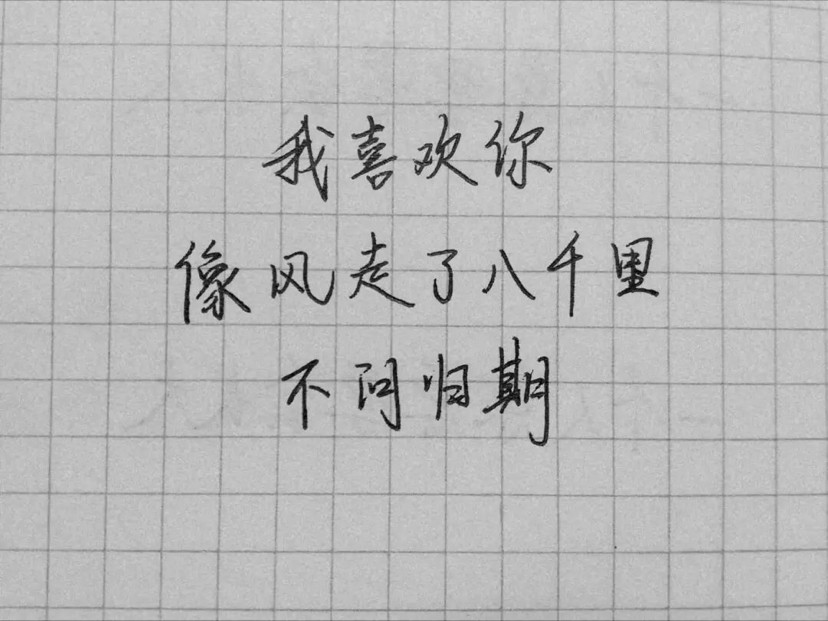 我喜欢你
像风走了八千里
不问归期